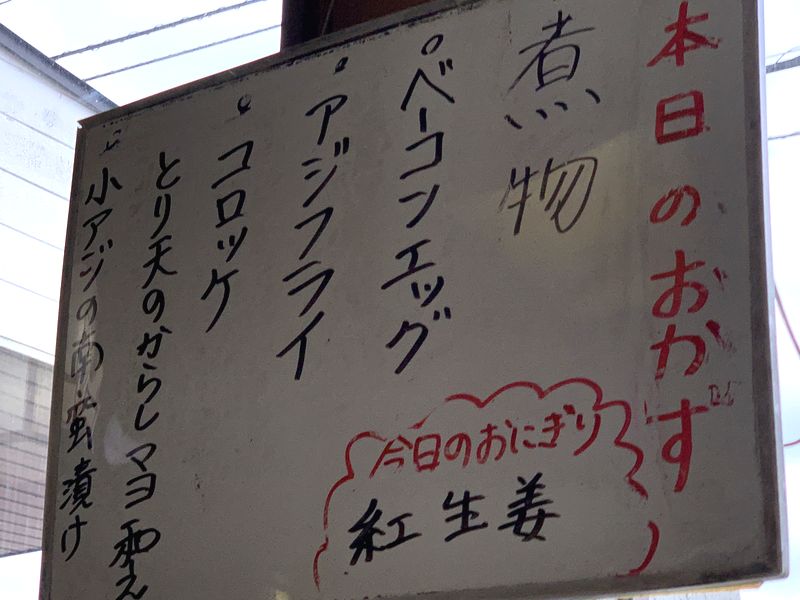 本日のおかず
煮物
ベーコンエッグ
アジフライ
コロッケ
とり天のからしマヨ和え
小アジの南蛮漬け
今日のおにぎり
紅生姜